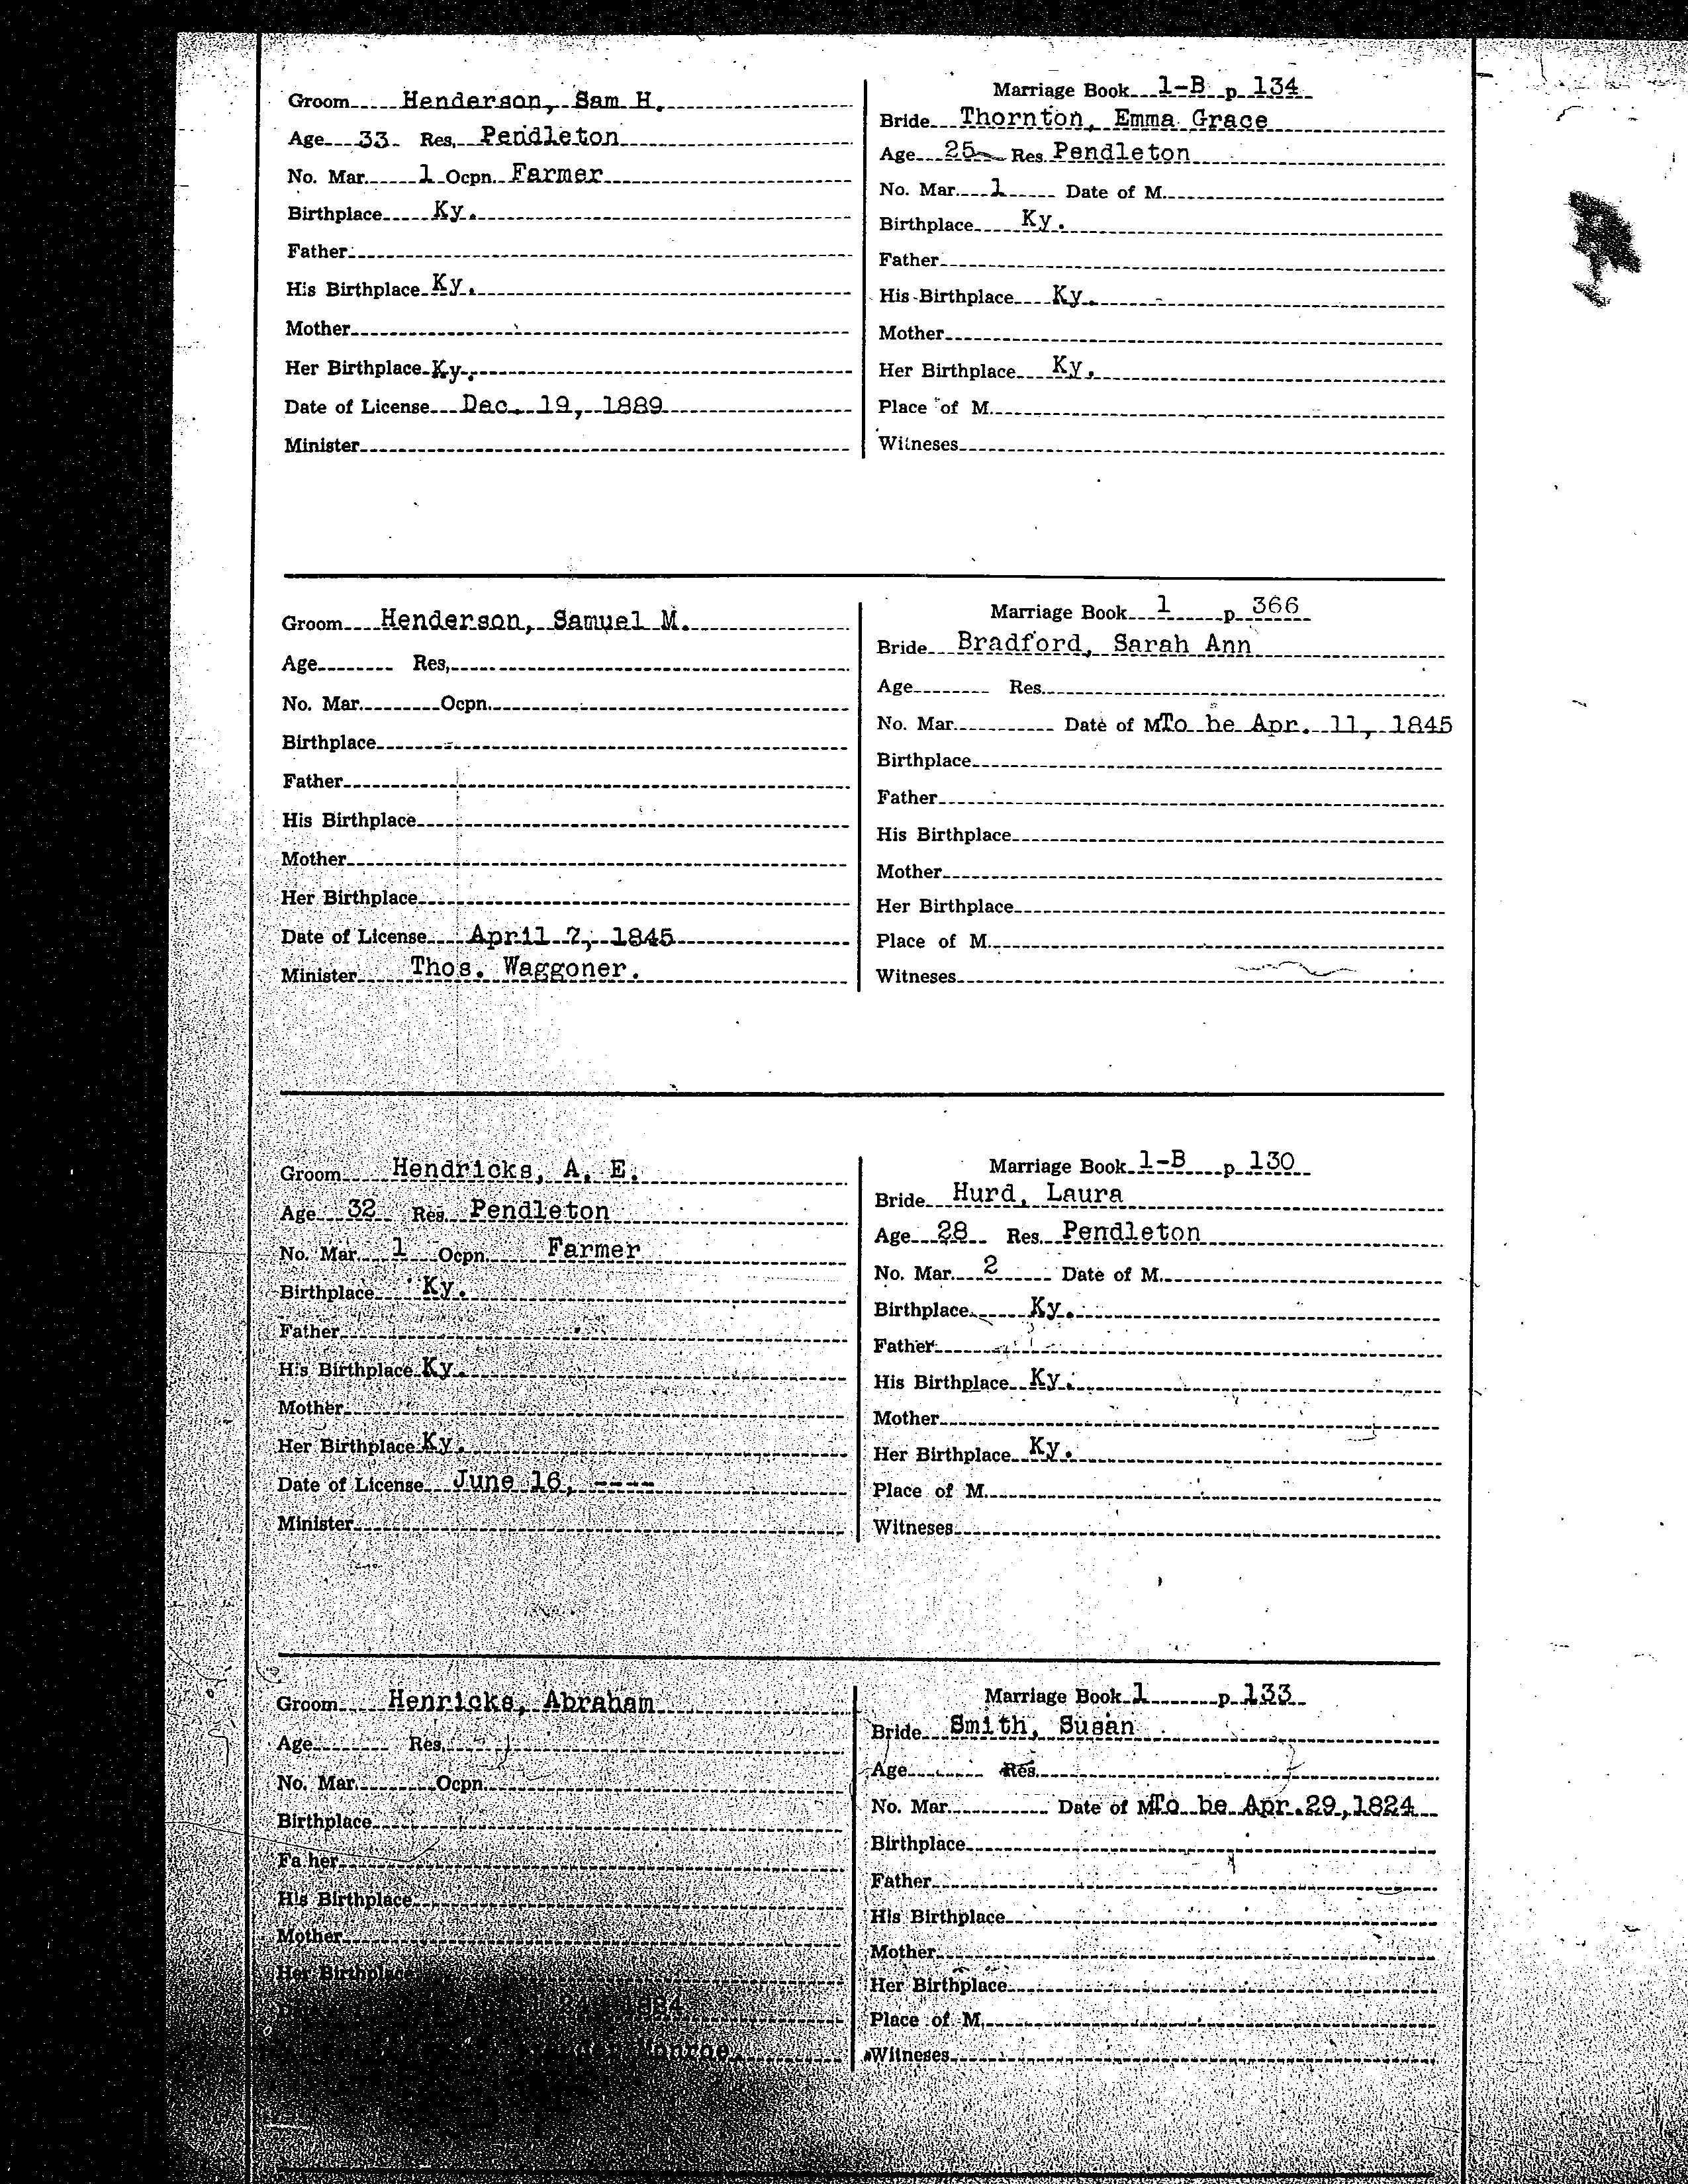 Groom Henderson, Sam H.
Age 33 Res. Pendleton
No. Mar. 1 Ocpn. Farmer
Birthplace Ky.
Father
His Birthplace Ky.
Mother
Her Birthplace Ky.
Date of License Dec. 19, 1889
Minister
Marriage Book 1-B p 134
Bride Thornton, Emma Grace
Age 25 Res. Pendleton
No. Mar. 1 Date of M.
Birthplace Ky.
Father
His Birthplace Ky.
Mother
Her Birthplace Ky.
Place of M.
Witneses
Groom Henderson, Samuel M.
Age Res.
No. Mar. Ocpn.
Birthplace
Father
His Birthplace
Mother
Her Birthplace
Date of License April 7, 1845
Minister Thos. Waggoner.
Marriage Book 1 p 366
Bride Bradford, Sarah Ann
Age Res.
No. Mar. Date of M To be Apr. 11, 1845
Birthplace
Father
His Birthplace
Mother
Her Birthplace
Place of M.
Witneses
Groom Hendricks, A. E.
Age 32 Res. Pendleton
No. Mar. 1 Ocpn. Farmer
Birthplace Ky.
Father
His Birthplace Ky.
Mother
Her Birthplace Ky.
Date of License June 16, ----
Minister
Marriage Book 1-B p 130
Bride Hurd, Laura
Age 28 Res. Pendleton
No. Mar. 2 Date of M.
Birthplace Ky.
Father
His Birthplace Ky.
Mother
Her Birthplace Ky.
Place of M.
Witneses
Groom Henricks, Abraham
Age Res.
No. Mar. Ocpn.
Birthplace
Fa her
His Birthplace
Mother
Her Birthplace
1824
Monroe
Marriage Book 1 p 133
Bride Smith, Susan
Age Res.
No. Mar. Date of M To be Apr.29,1824
Birthplace
Father
His Birthplace
Mother
Her Birthplace
Place of M.
Witneses